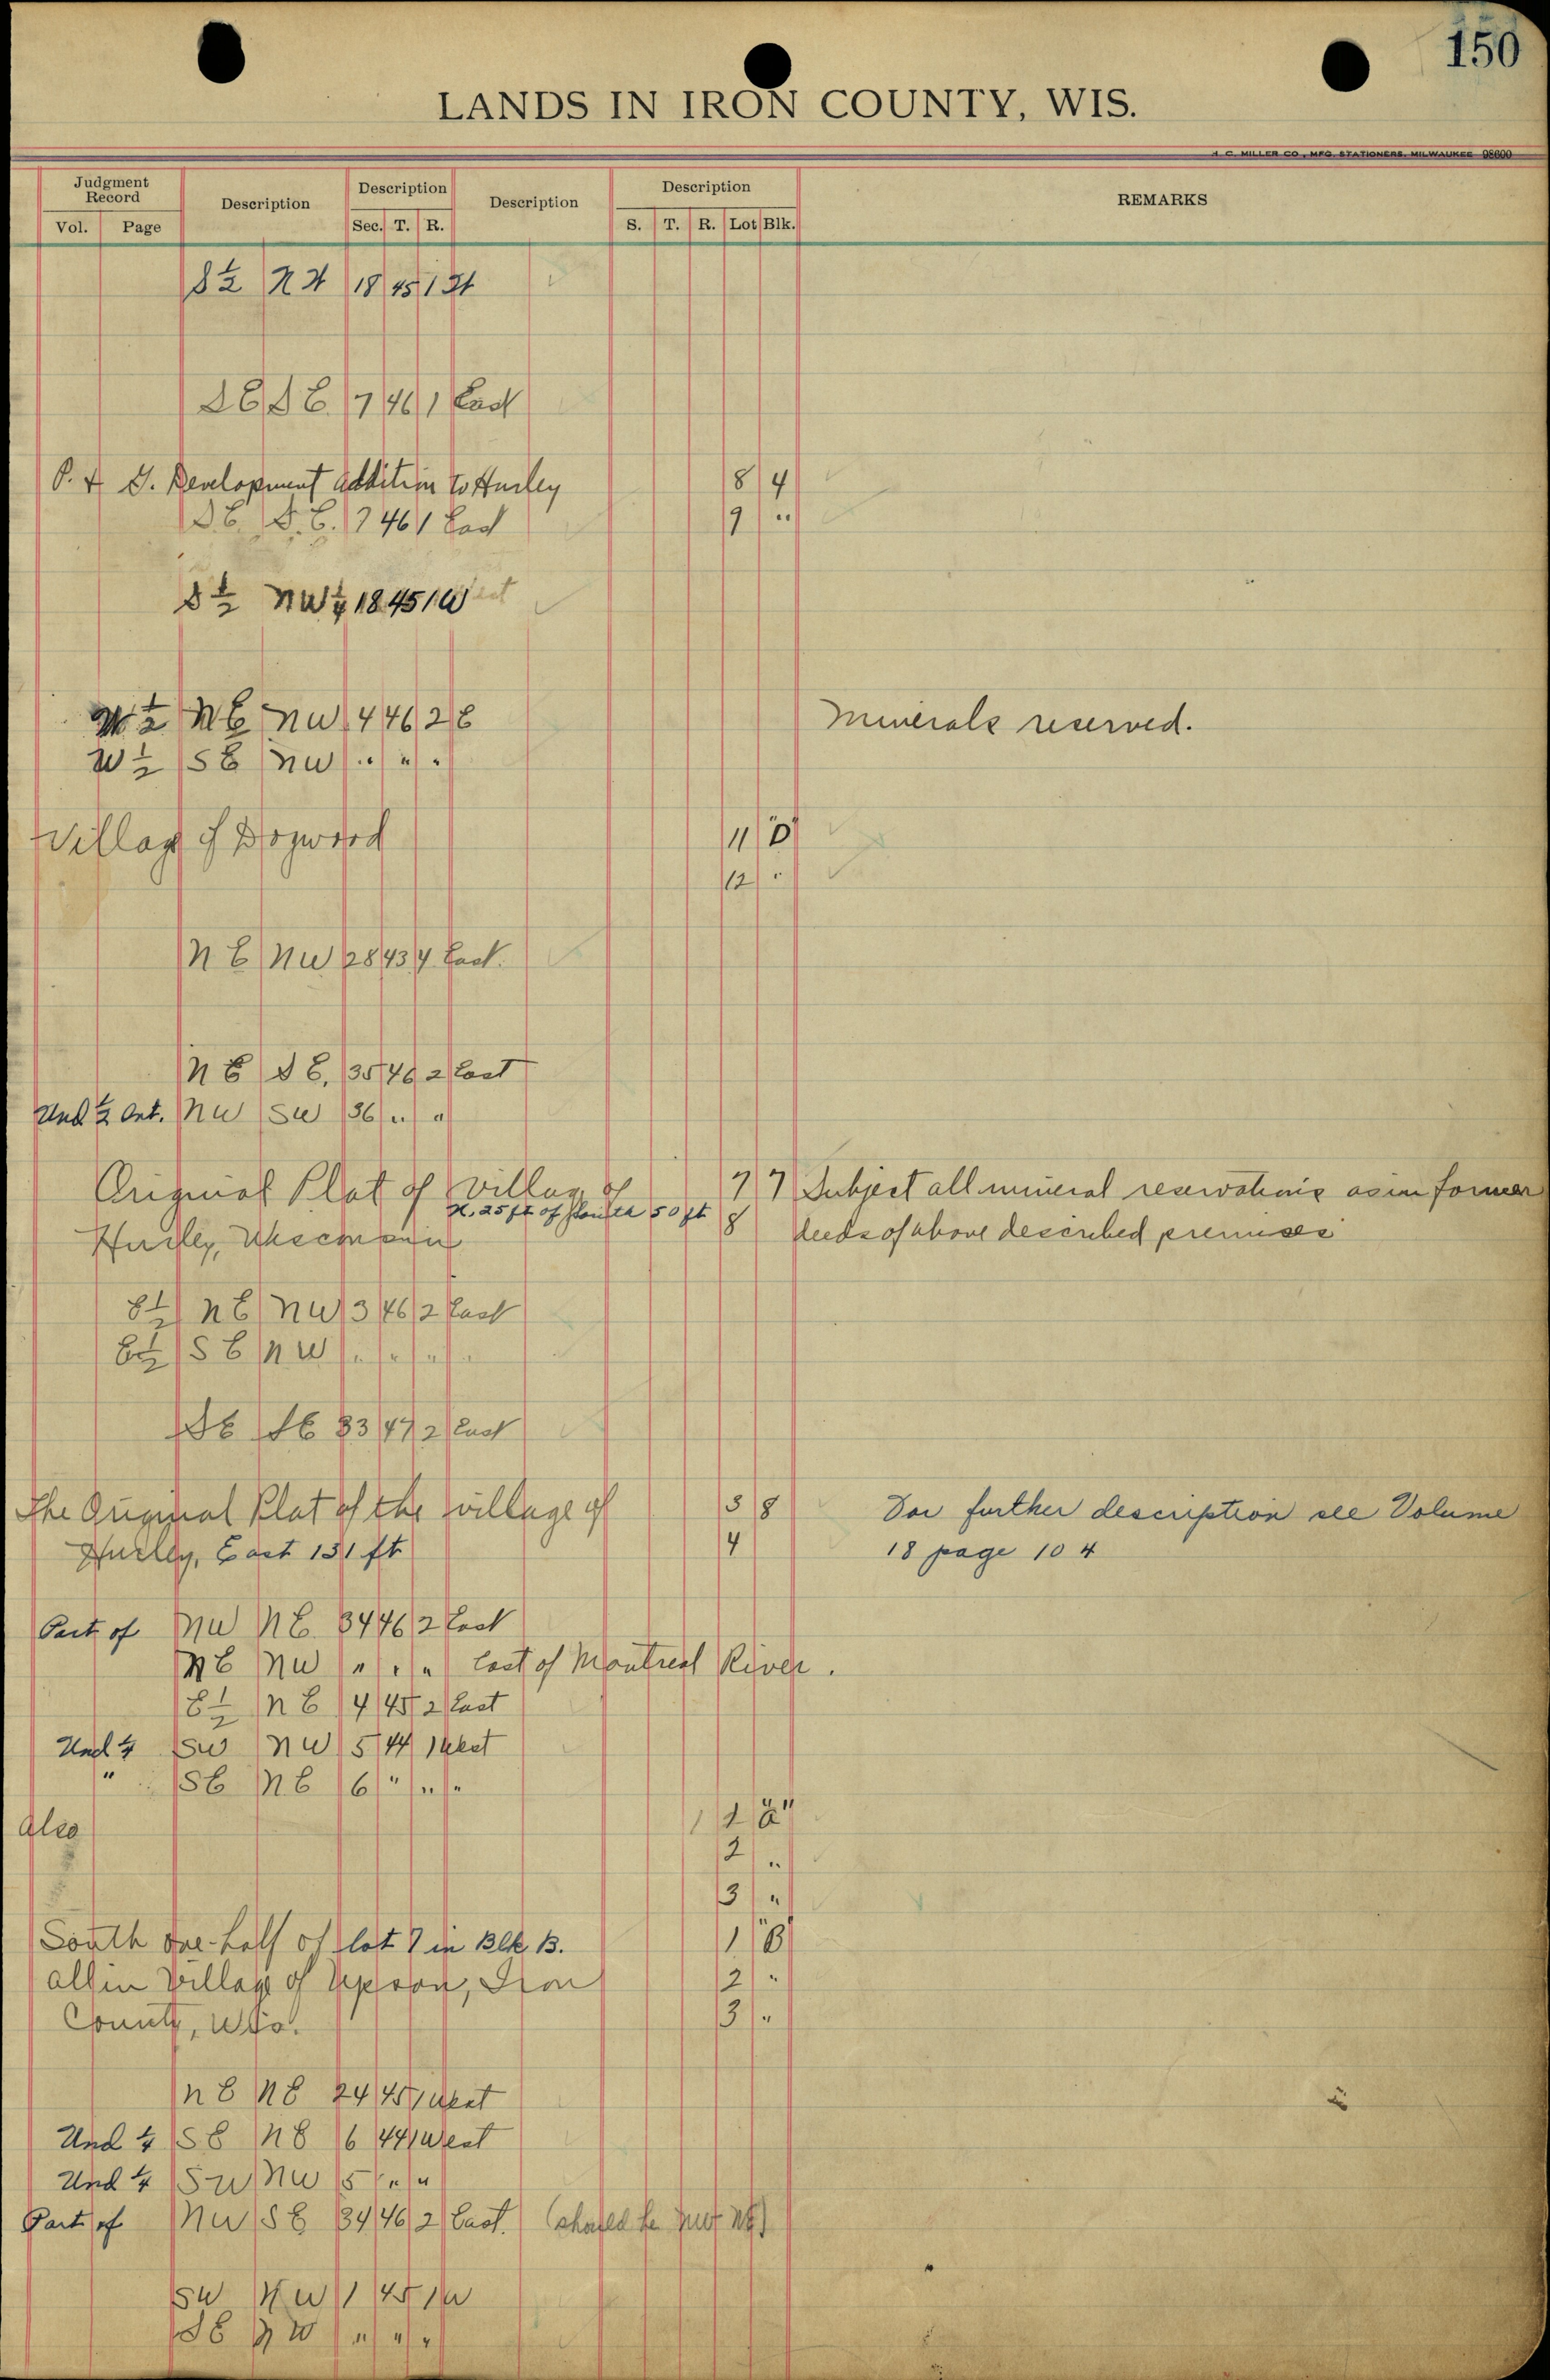 150
LANDS IN IRON COUNTY, WIS.
H. C. MILLER CO., MFG. STATIONERS, MILWAUKEE 98600
Judgment Record Description Description Description Description REMARKS
Vol. Page Sec. T. R. S. T. R. Lot Blk.
S½ 18 45 1
SE SE 7 46 1 East
P. & G. Development Addition to Hurley 8 4
SE S.E. 7 46 1 East 9 "
S½ NW¼ 18 45 1 W
W½ NE NW 4 46 2 E Minerals reserved.
W½ SE NW " " "
Village of Dogwood 11 "D"
12 "
NE NW 28 43 4 East.
NE SE, 35 46 2 East
Und ½ Int. NW SW 36 " "
Original Plat of Village of 7 7 Subject all mineral reservations as in former
N. 25 ft of South 50 ft 8
Hurley, Wisconsin deeds of above described premises
E½ NE NW 3 46 2 East
E½ SE NW " " " "
SE SE 33 47 2 East
The Original Plat of the village of 3 8 For further description see Volume
Hurley, East 131 ft 4 18 page 104
Part of NW NE 34 46 2 East
NE NW " " " East of Montreal River.
E½ NE 4 45 2 East
Und ¼ SW NW 5 44 1 West
" SE NE 6 " " "
Also 1 "A"
2 "
3 "
South one-half of lot 7 in Blk B. 1 "B"
all in Village of Upson, Iron 2 "
County, Wis. 3 "
NE NE 24 45 1 West
Und ¼ SE NE 6 44 1 West
Und ¼ SW NW 5 " "
Part of NW SE 34 46 2 East. (should be NW NE)
SW NW 1 45 1 W
SE NW " " "